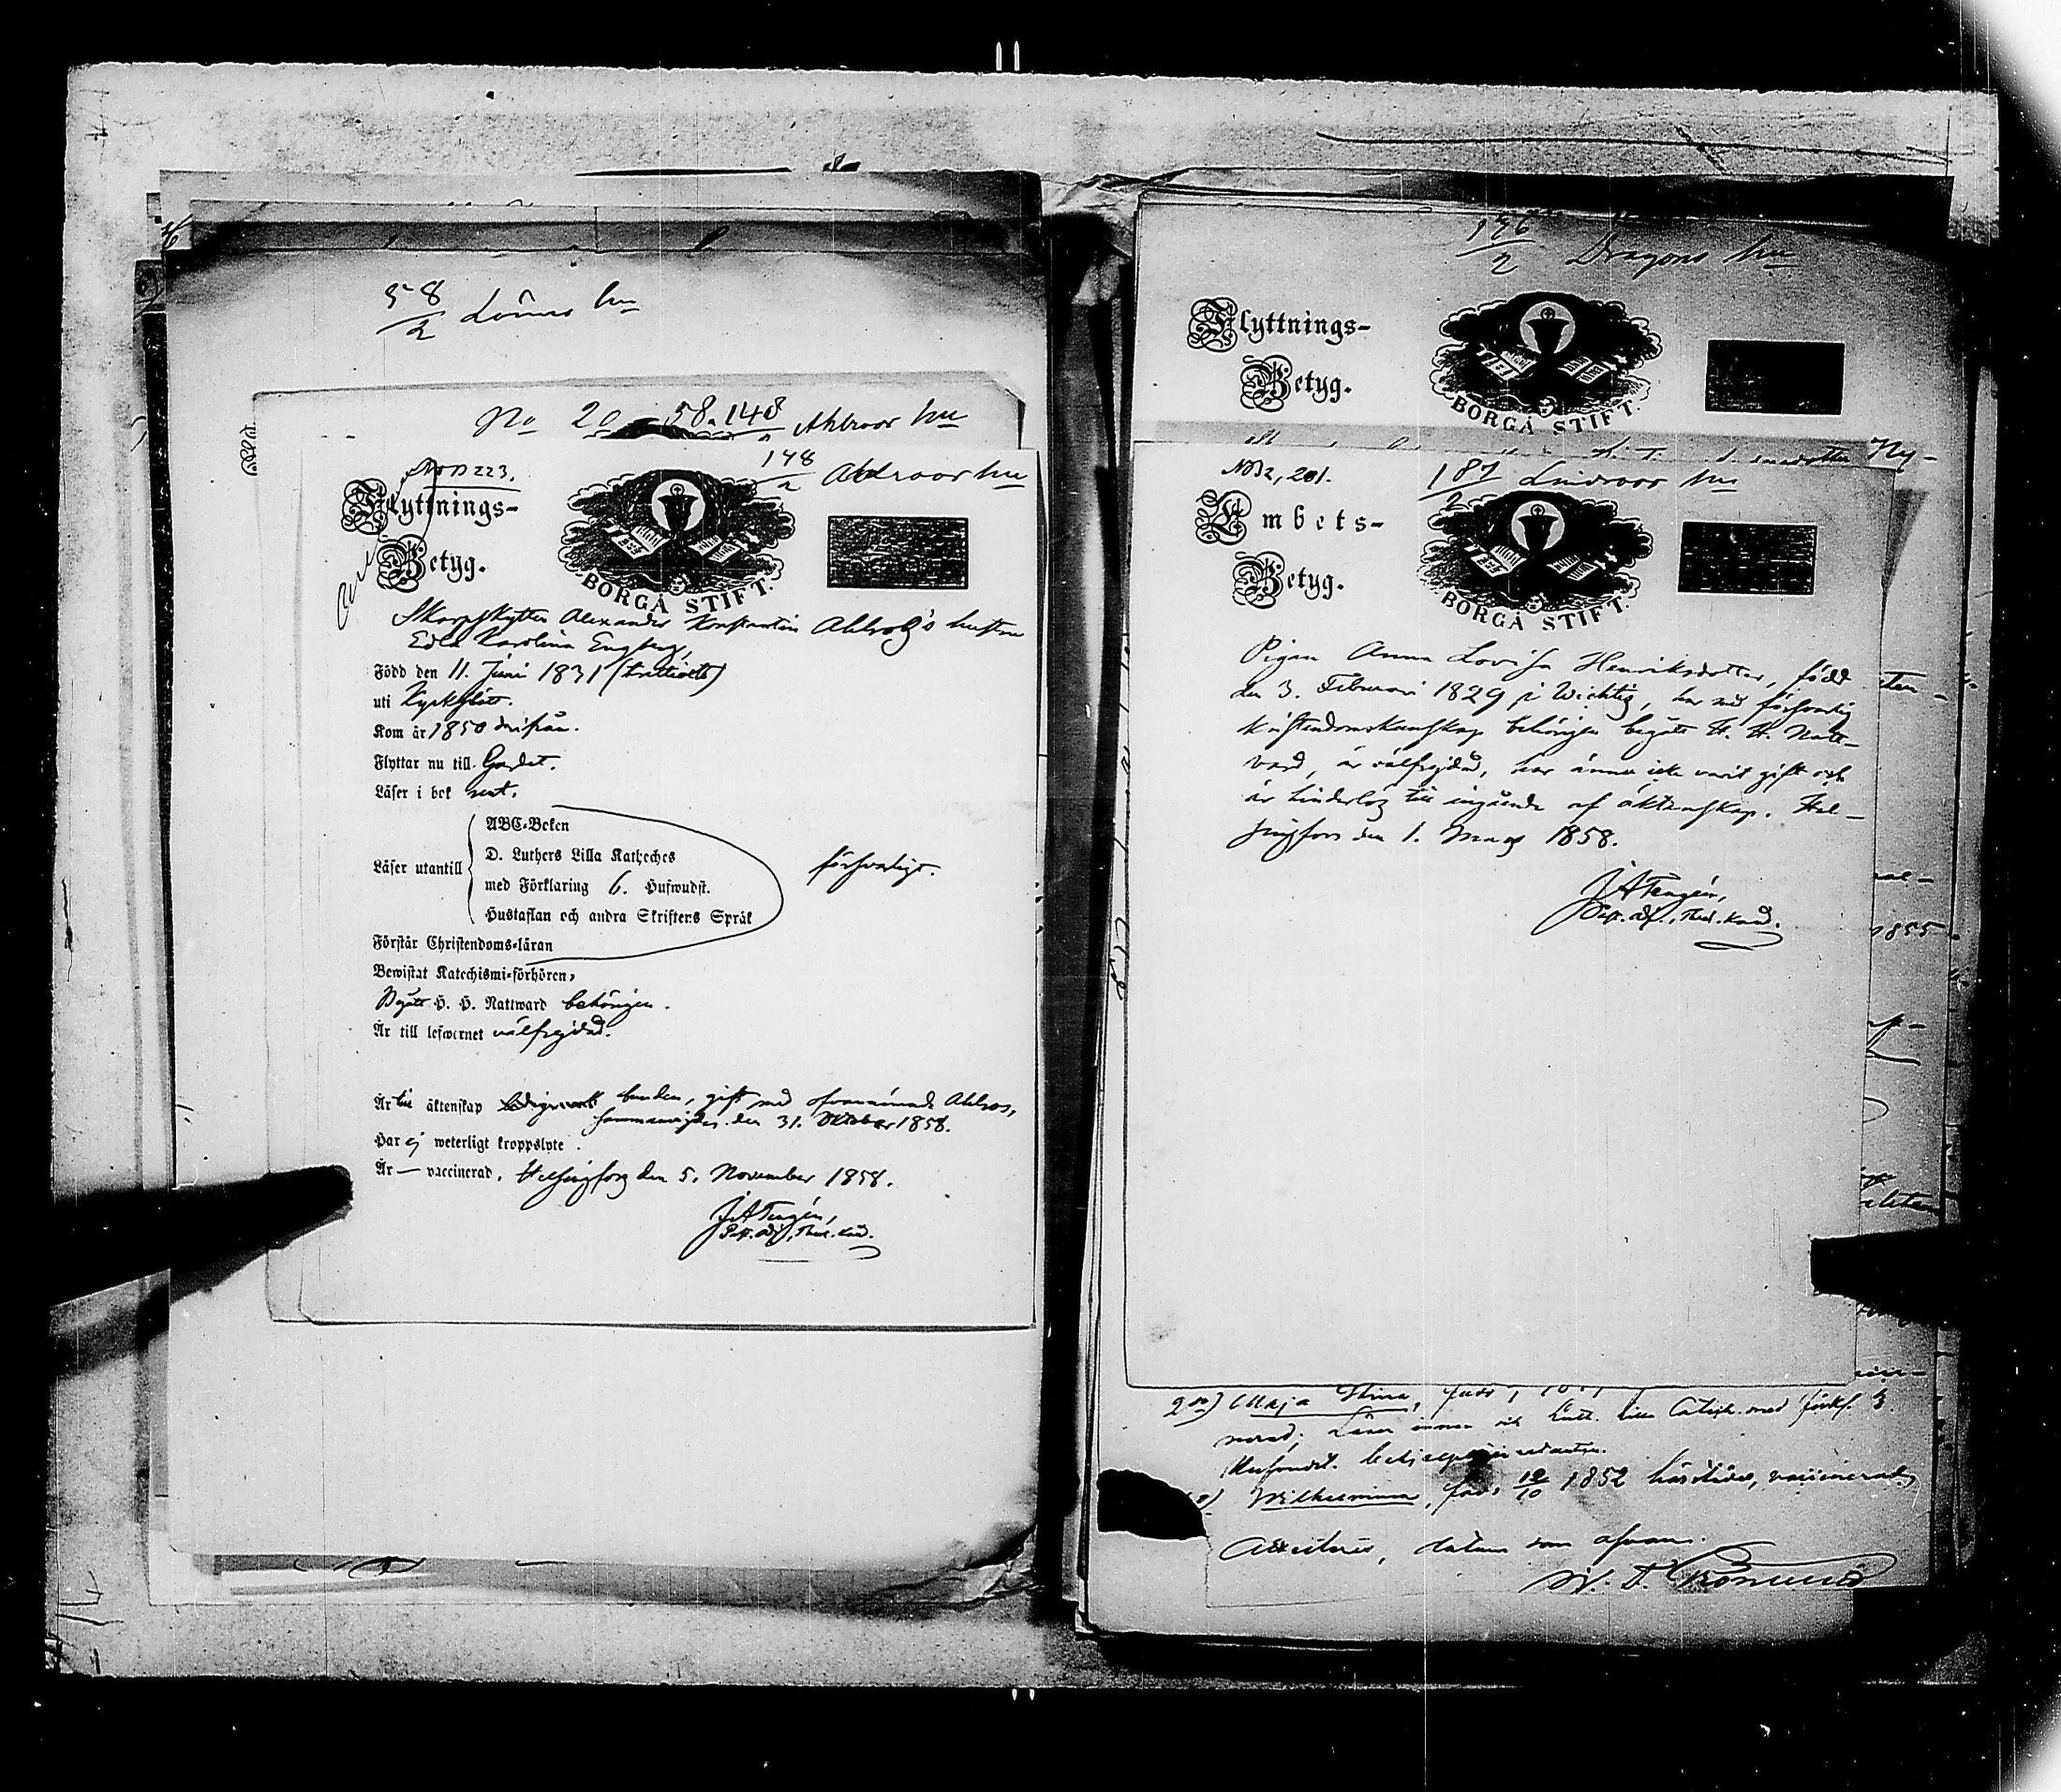 58/2 Lönns hu
No 20 - 58. 148/2 Ahlroos hu
No B 223.
148/2 Ahlroos hu
Flyttnings-
Betyg.
BORGÅ STIFT.
Skarpskytten Alexander Konstantin Ahlroos's hustru
Edla Karolina Engberg,
Född den 11. Juni 1831 (trettioett)
uti Kyrkslätt.
Kom år 1850 derifrån.
Flyttar nu till Gardet.
Läser i bok rent.
Läser utantill
ABC-Boken
D. Luthers Lilla Katheches
med Förklaring 6. Hufwudst.
Hustaflan och andra Skriftens Språk
försvarligt.
Förstår Christendoms-läran
Bewistat Katechismi-förhören,
Begått H. H. Nattward behörigen.
Är till lefwernet välfrejdad.
Är till äktenskap bunden, gift med ofvannämnde Ahlroos,
sammanvigde den 31. Oktober 1858.
Har ej weterligt kroppslyte.
Är — vaccinerad. Helsingfors den 5. November 1858.
J A Tengén,
Past. adj., Theol. Kand.
196/2 Dragons hu
Flyttnings-
Betyg.
BORGÅ STIFT.
Ny-
No B2, 201.
187/2 Lindroos hu
Embets-
Betyg.
BORGÅ STIFT.
Pigan Anna Lovisa Henriksdotter, född
den 3. Februari 1829 i Wichtis, har med försvarlig
kristendomskunskap behörigen begått H. H. Natt-
vard, är välfrejdad, har ännu icke varit gift och
är hinderlös till ingående af äktenskap. Hel-
singfors den 1. Mars 1858.
J A Tengén,
Past. adj., Theol. Kand.
1855.
2do) Maja Stina, född
Wilhelmina, född 12/10 1852 härstädes, vaccinerad,
Attesteras, datum som ofvan.